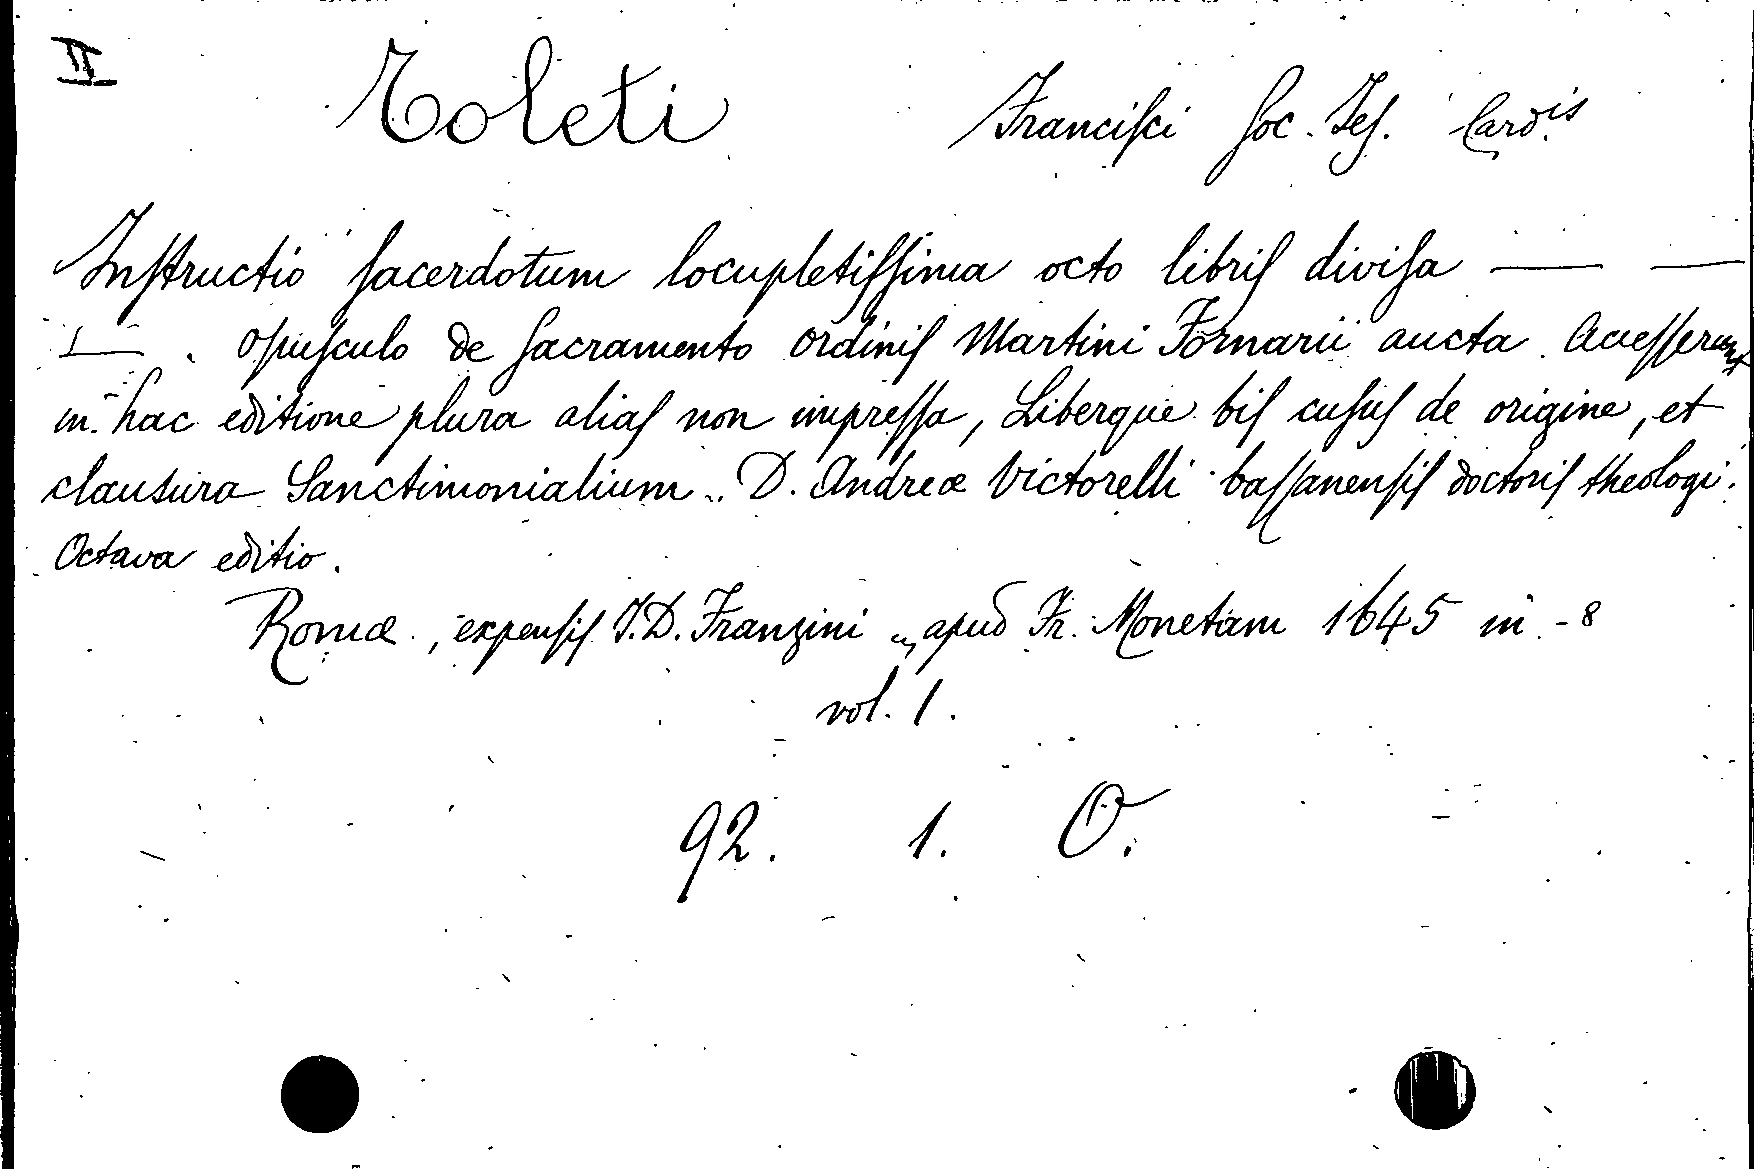 II Toleti Franciſci Soc. Jeſ. Cardis
Inſtructio ſacerdotum locupletiſſima octo libriſ diviſa — —
— . opuſculo de ſacramento ordiniſ Martini Fornarii aucta. Acceſſerunt
in hac editione plura aliaſ non impreſſa, Liberque biſ cuſuſ de origine, et
clausura Sanctimonialium .. D. Andreæ Victorelli baſſanenſiſ doctoriſ theologi.
Octava editio.
Romæ, expenſiſ J.D. Franzini „ apud Fr. Monetam 1645 in - 8
vol. 1.
92. 1. O.